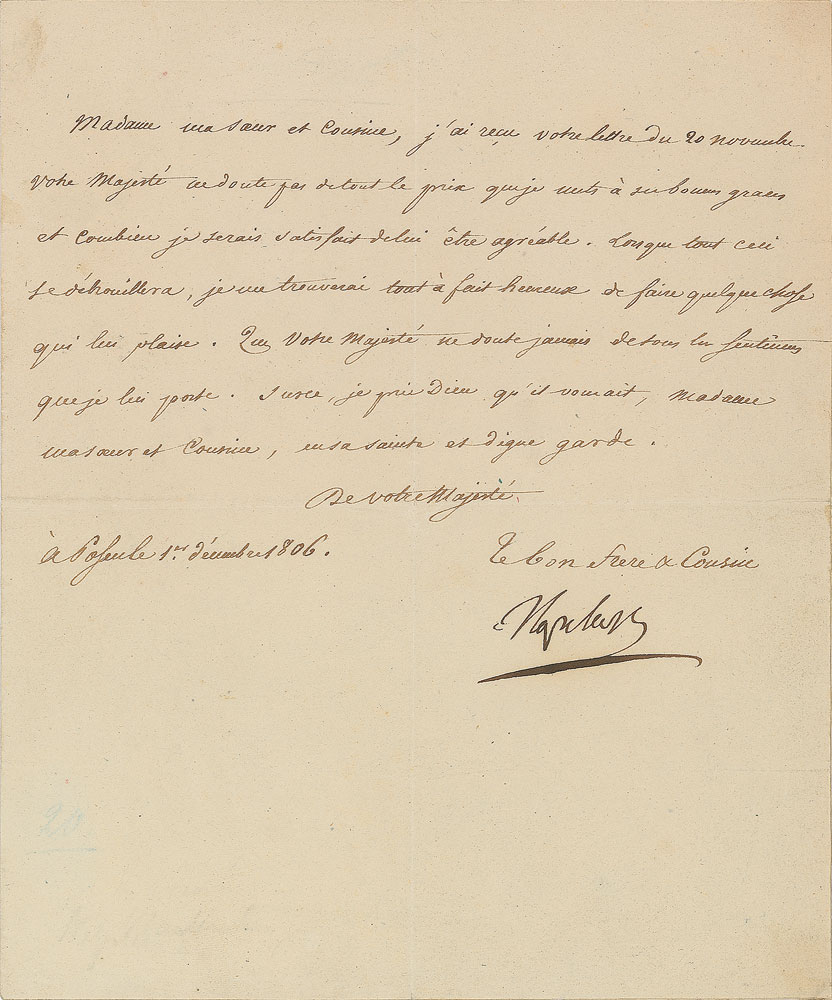 Madame ma Sœur et Cousine, j'ai reçu votre lettre du 20 novembre.
Votre Majesté ne doute pas de tout le prix que je mets à ses bonnes graces
et combien je serais satisfait de lui être agréable. Lorsque tout ceci
se débrouillera, je me trouverai tout à fait heureux de faire quelque chose
qui lui plaise. Que Votre Majesté ne doute jamais de tous les sentimens
que je lui porte. Sur ce, je prie Dieu qu'il vous ait, Madame
ma sœur et Cousine, en sa sainte et digne garde.
De votre Majesté
à Posen le 1er décembre 1806.
Le bon Frere & Cousin
Napoleon
20